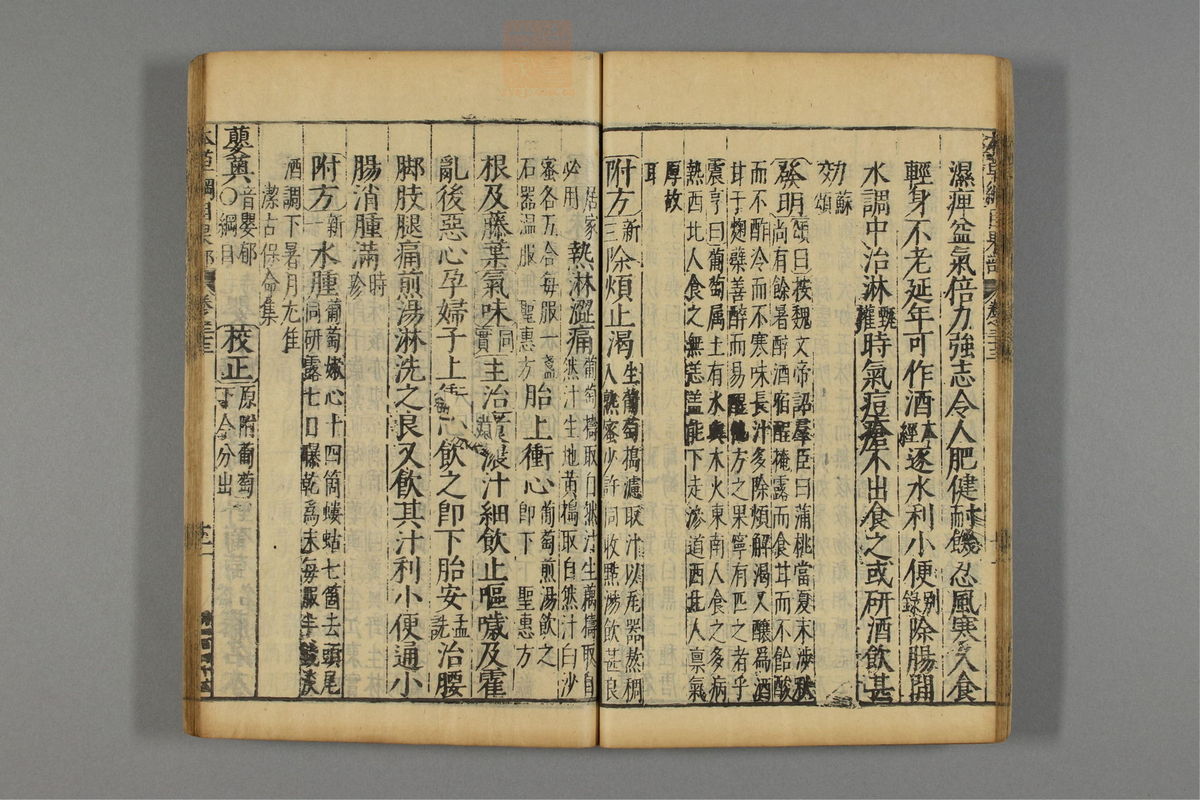 濕痺益氣倍力強志令人肥健耐饑忍風寒久食
輕身不老延年可作酒本經逐水利小便別錄除腸間
水調中治淋甄權時氣痘瘡不出食之或研酒飲甚
効蘇頌
發明頌曰按魏文帝詔羣臣曰蒲桃當夏末涉秋
尚有餘暑醉酒宿醒掩露而食甘而不飴酸
而不酢冷而不寒味長汁多除煩解渴又釀為酒
甘于麴糵善醉而易醒他方之果寧有匹之者乎
震亨曰葡萄属土有水與木火東南人食之多病
熱西北人食之無恙蓋能下走滲道西北人禀氣
厚故
耳
附方新三除煩止渴生葡萄搗濾取汁以瓦器熬稠
入熟蜜少許同收點湯飲甚良
居家
必用熱淋澀痛葡萄擣取自然汁生藕擣取自
然汁生地黃搗取自然汁白沙
蜜各五合每服一盞
石器温服 聖惠方胎上衝心葡萄煎湯飲之
即下 聖惠方
根及藤葉氣味同實主治煑濃汁細飲止嘔噦及霍
亂後惡心孕婦子上衝心飲之即下胎安孟詵治腰
脚肢腿痛煎湯淋洗之良又飲其汁利小便通小
腸消腫滿時珍
附方新一水腫葡萄嫩心十四箇螻蛄七箇去頭尾
同研露七日曝乾為末每服半錢淡
酒調下暑月尤佳
潔古保命集
蘡薁音嬰郁〇綱目校正原附葡萄
下今分出
本草綱目果部 卷三十三